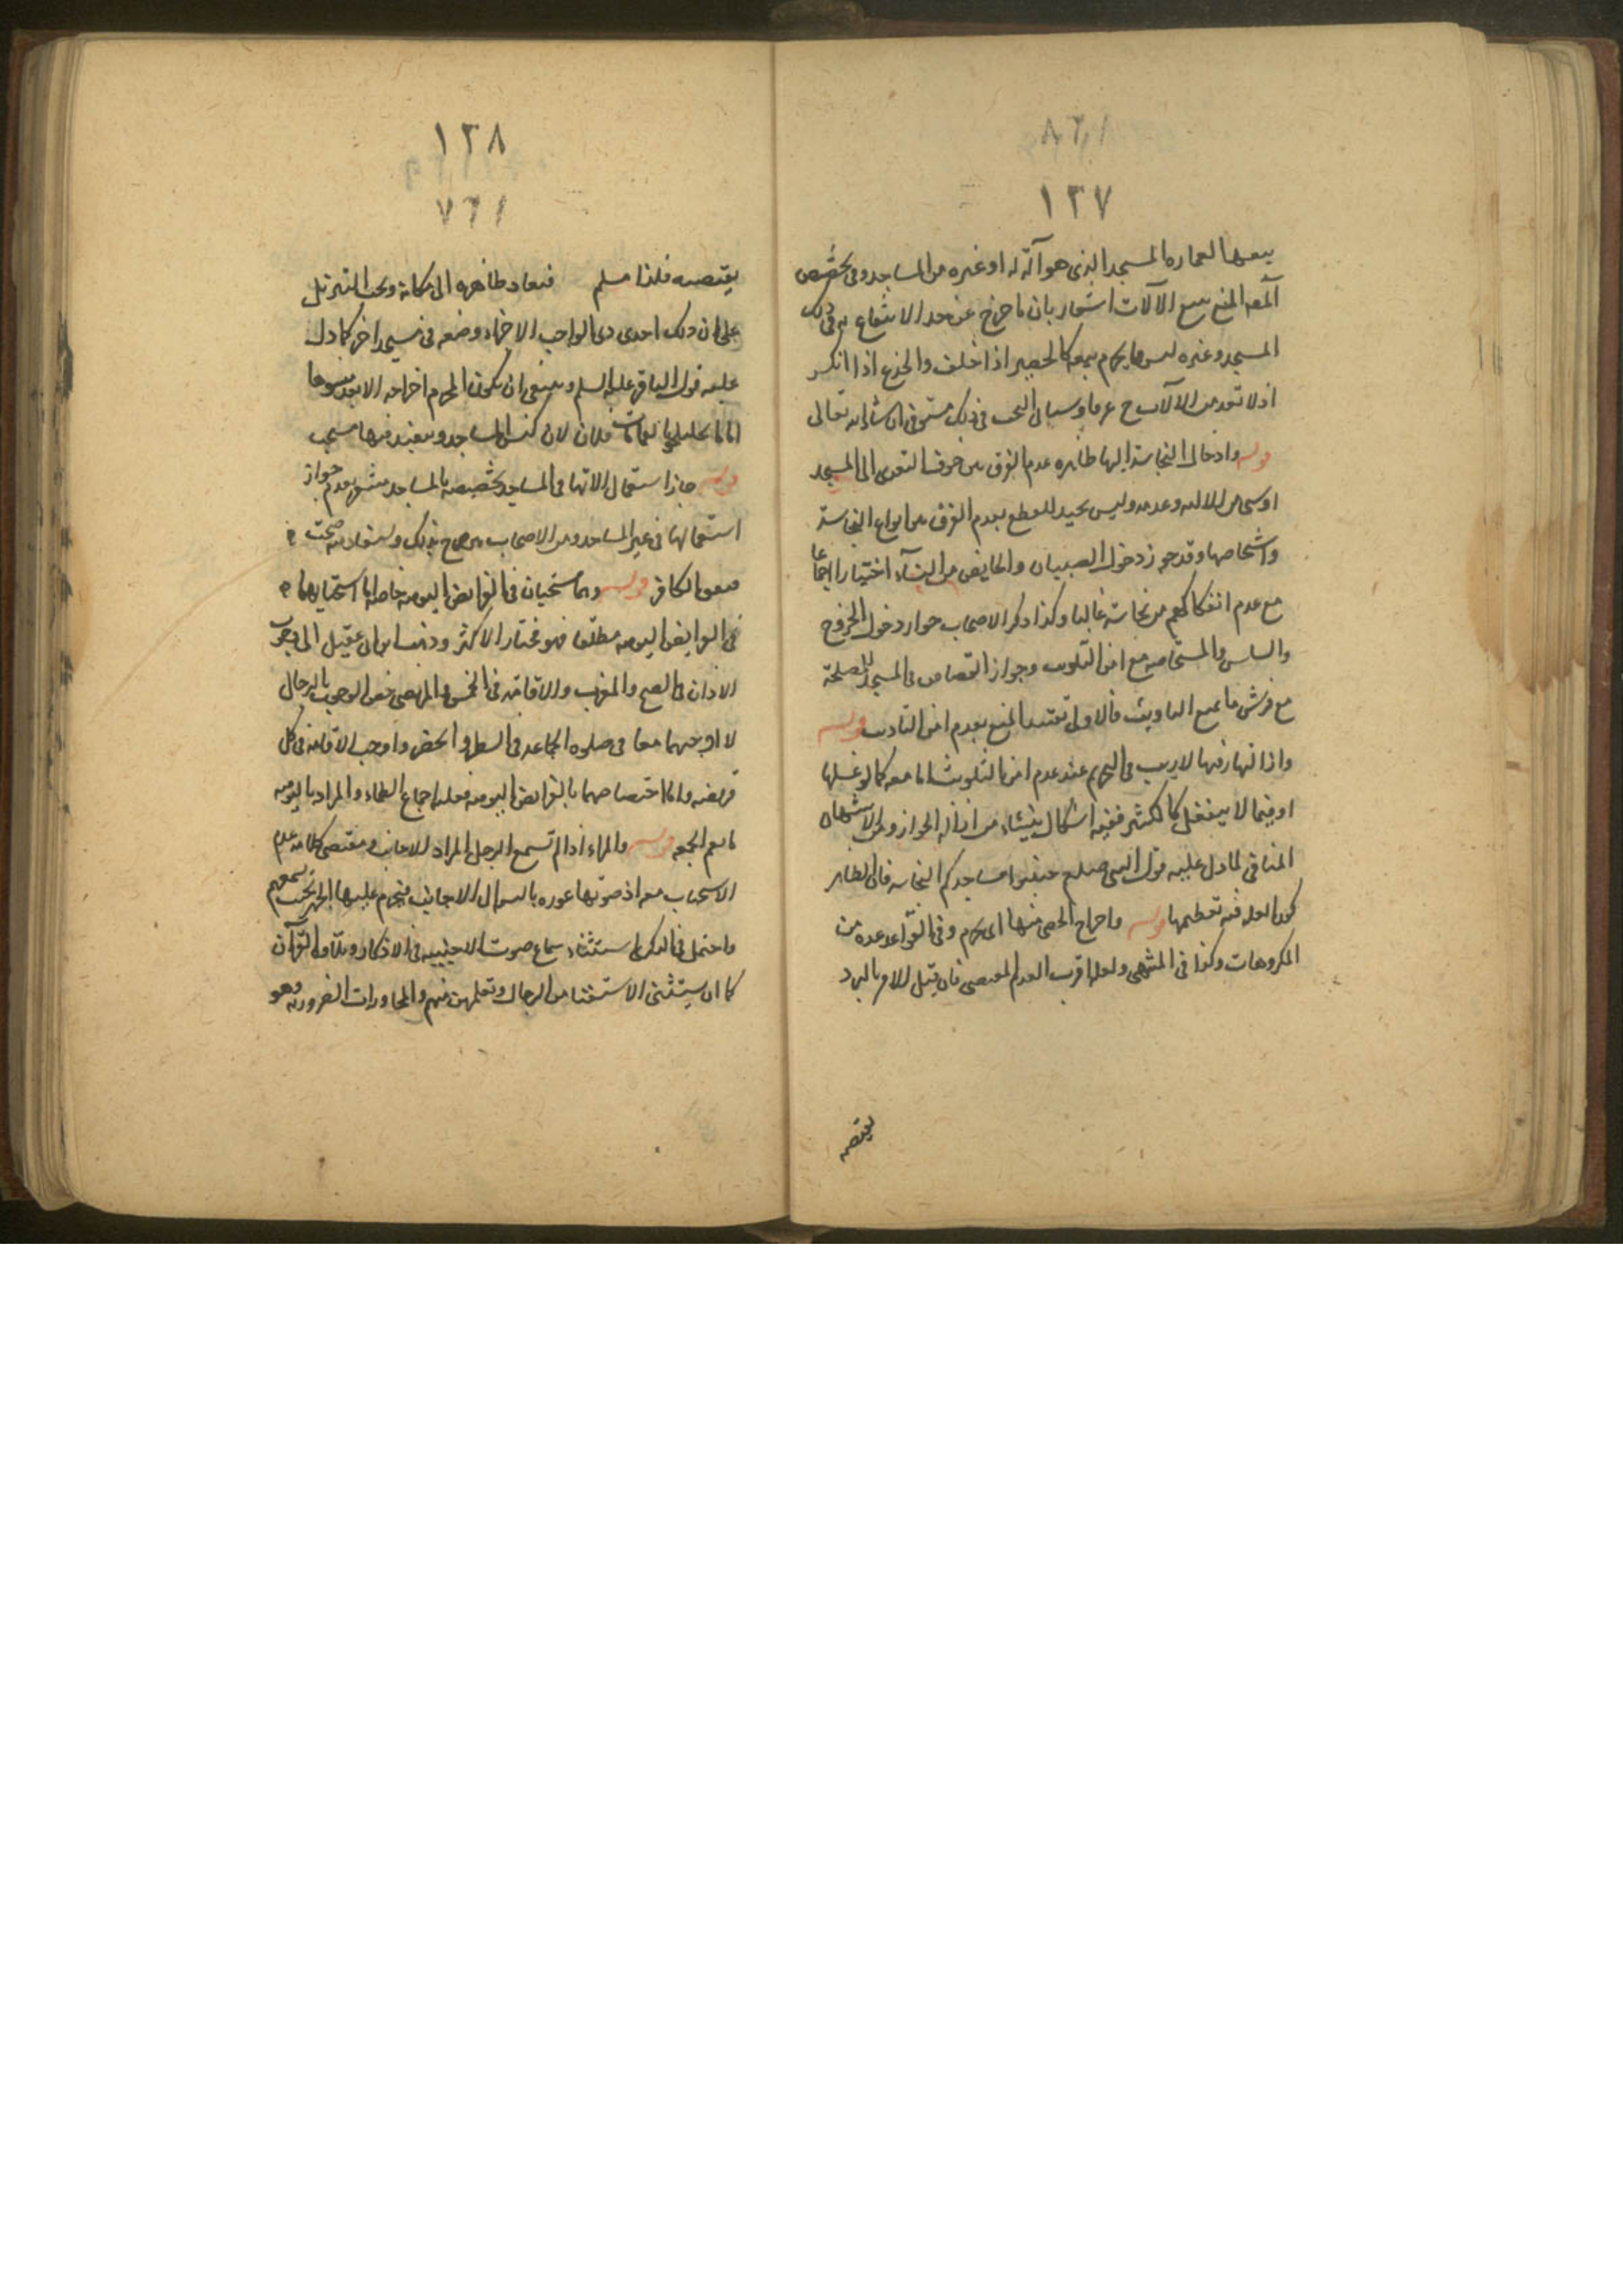 ١٣٧
بيعها لعماره المسجد الذى هو آلة له او غيره من المساجد وفى تخصيص
المنع ببيع الآلات اشعار بان ما خرج عن حد الانتفاع به فى ذلك
المسجد وغيره ليس مما يحرم بيعه كالحصير اذا خلق والجذع اذا انكسر
اذ لا تعد من الآلات ح عرفا وسياتى البحث فى ذلك مستوفى ان شاء الله تعالى
قوله وادخال النجاسة اليها ظاهره عدم الفرق بين خوف التعدى الى المسجد
او شى من آلاته وعدمه وليس بجيد للقطع بعدم الفرق بين انواع النجاسة
واشخاصها وقد جوز دخول الصبيان والحايض من النساء اختيارا اجماعا
مع عدم انفكاكهم من نجاسة غالبا وكذا ذكر الاصحاب جواز دخول المجروح
والسلس والمستحاضه مع امن التلويث وجواز القصاص فى المسجد للمصلحة
مع فرش ما يمنع التلويث فالاولى تقييد المنع بعدم امن التلويث قوله
وازالتها فيها لا ريب فى التحريم عند عدم امن التلويث اما معه كما لو غسلها
او فيما لا ينفعل كالكثير ففيه اشكال ينشاء من
المنافى لما دل عليه قول النبى صلعم جنبوا مساجدكم النجاسه فان الظاهر
كون العله فيه تعظيمها قوله واخراج الحصى منها اى يحرم وفى القواعد عده من
المكروهات وكذا فى المنتهى ولعله اقرب لعدم المقتضى فان قيل الامر بالرد
يقتضيه
١٣٨
يقتضيه فلذا مسلم فتعاد ظاهره الى مكانه ويجب التنزيل
على ان ذلك احدى الواجب الاجزاء وضعه فى مسجد اخر كما دل
عليه قول الباقر عليه السلم وينبغى ان يكون المحرم اخراجه
فلان لان كنس المساجد وتنظيفها مستحب
قوله جاز استعمال آلاتها فى المساجد تخصيصه بالمساجد مشعر بعدم جواز
استعمالها فى غير المساجد ومن الاصحاب من صرح بذلك ويستفاد منه
الكافر قوله وهما مستحبان فى الفرايض اليوميه خاصه اما استحبابهما
فى الفرايض اليوميه مطلقا فهو مختار الاكثر وذهب ابن ابى عقيل الى وجوب
الاذان فى الصبح والمغرب والاقامة فى الخمس والمرتضى خص الوجوب بالرجال
لا اوجبهما معا فى صلوة الجماعه فى السفر والحضر واوجب الاقامة فى كل
فريضه واما اختصاصهما بالفرايض اليوميه فعليه اجماع العلماء والمراد باليوميه
ما يعم الجمعه قوله والمراه اذا لم تسمع الرجل المراد الاجانب ومقتضى كلامه عدم
الاستحباب معه اذ صوتها عوره بالنسبه الى الاجانب فيحرم عليها الجهر بحيث يسمعهم
واحتمل فى الذكرى استثناء سماع صوت الاجنبيه فى الاذكار وتلاوة القرآن
كما ان يستثنى الاستفتا من الرجال وتعلمهن منهم والمحاورات الضرورية وهو